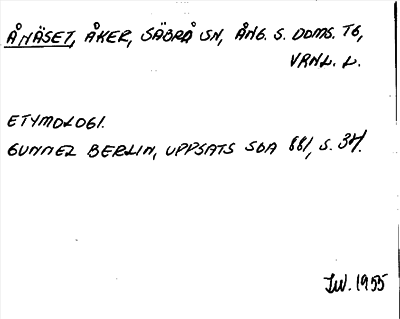 ÅNÄSET, ÅKER, SÄBRÅ SN, ÅNG. S. DOMS. TG,
VRNL. L.
ETYMOLOGI.
GUNNEL BERLIN, UPPSATS SOA 881, S. 34.
IW. 1955